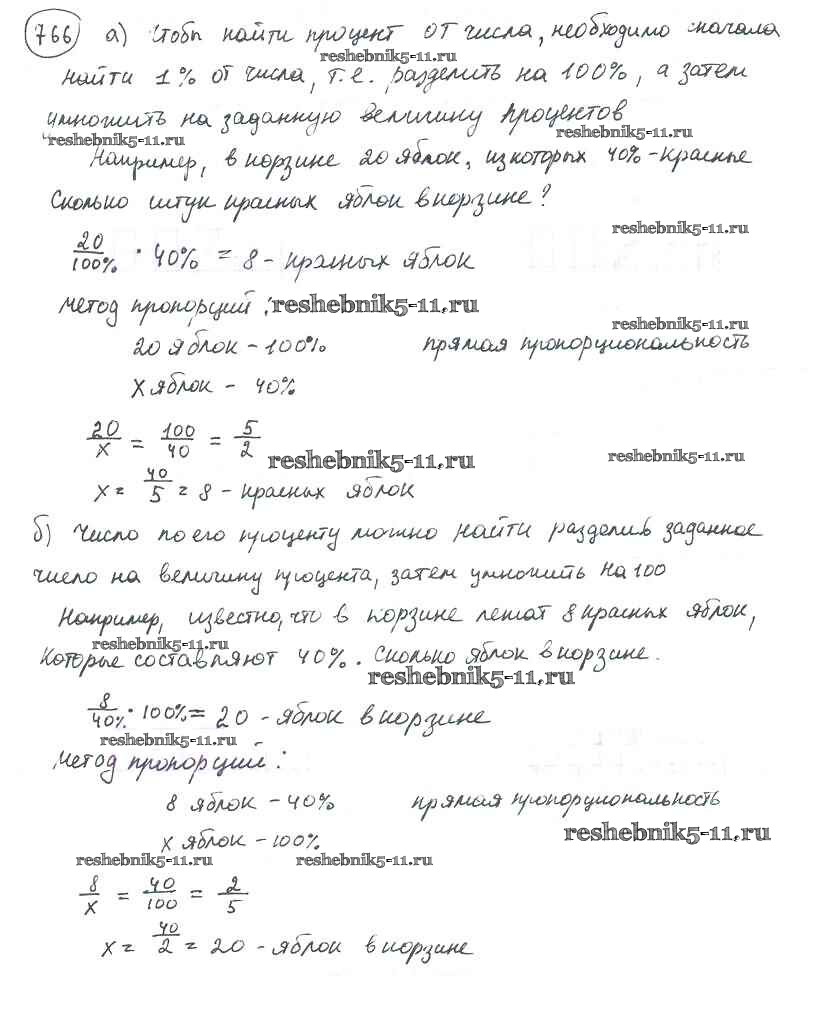 766 а) Чтобы найти процент от числа, необходимо сначала
reshebnik5-11.ru
найти 1% от числа, т.е. разделить на 100%, а затем
умножить на заданную величину процентов
reshebnik5-11.ru reshebnik5-11.ru
Например, в корзине 20 яблок, из которых 40% - красные
Сколько штук красных яблок в корзине?
reshebnik5-11.ru
20/100% · 40% = 8 - красных яблок
Метод пропорций: reshebnik5-11.ru
reshebnik5-11.ru
20 яблок - 100% прямая пропорциональность
x яблок - 40%
20/x = 100/40 = 5/2
reshebnik5-11.ru reshebnik5-11.ru
x = 40/5 = 8 - красных яблок
б) Число по его проценту можно найти разделив заданное
число на величину процента, затем умножить на 100
Например, известно, что в корзине лежат 8 красных яблок,
reshebnik5-11.ru
которые составляют 40%. Сколько яблок в корзине.
reshebnik5-11.ru
8/40% · 100% = 20 - яблок в корзине
reshebnik5-11.ru
Метод пропорций:
8 яблок - 40% прямая пропорциональность
x яблок - 100% reshebnik5-11.ru
reshebnik5-11.ru reshebnik5-11.ru
8/x = 40/100 = 2/5
x = 40/2 = 20 - яблок в корзине